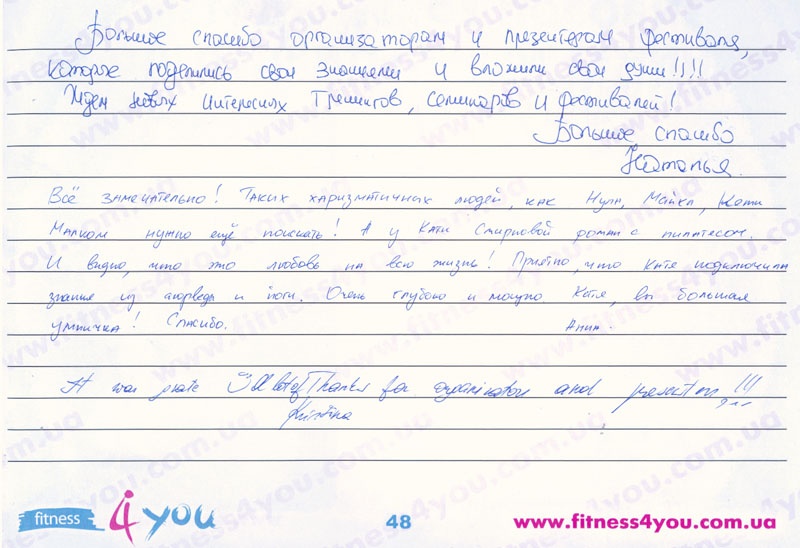 Большое спасибо организаторам и презентерам фестиваля,
которые поделились свои знаниями и вложили свои души!!!!
Ждем новых интересных Тренингов, семинаров и фестивалей!
Большое спасибо
Наталья.
Всё замечательно! Таких харизматичных людей, как Нула, Майкл, Кати
Малком нужно ещё поискать! А у Кати Смирновой роман с пилатесом.
И видно, что это любовь на всю жизнь! Приятно, что Катя подключила
знание из аюрведы и йоги. Очень глубоко и мощно Катя, вы большая
умничка! Спасибо. Анна.
It was Thanks for and !!!
Kristina
fitness 4 you
48
www.fitness4you.com.ua